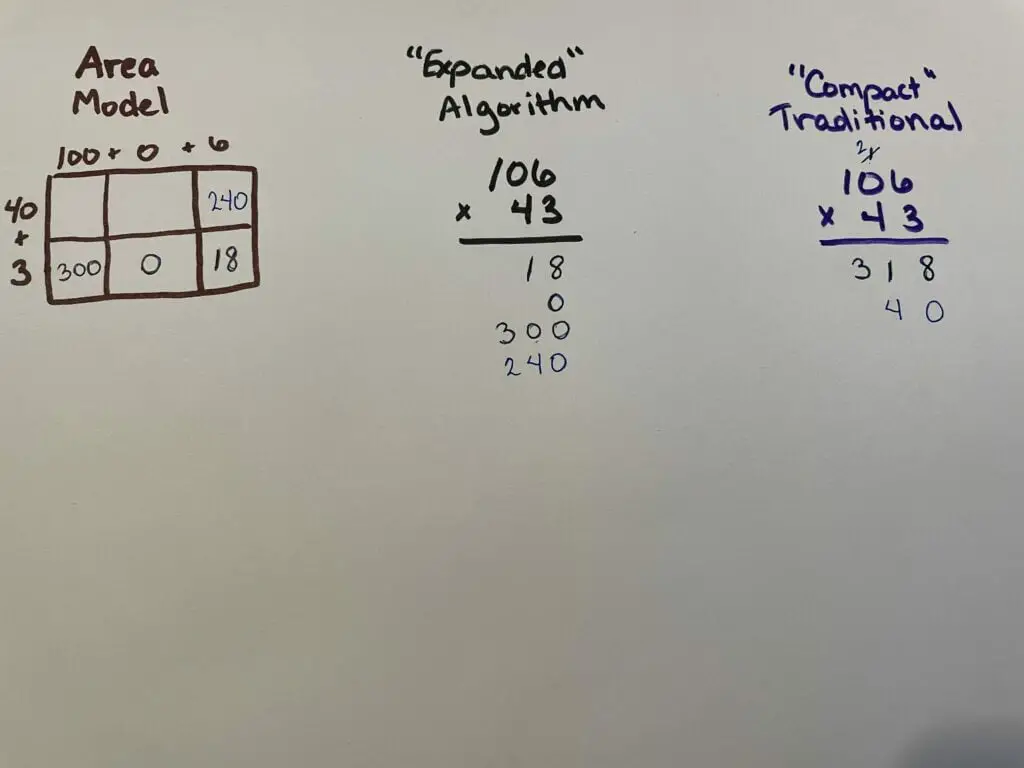 Area
Model
100 + 0 + 6
40
240
+
3
300
0
18
"Expanded"
Algorithm
106
x 43
18
0
300
240
"Compact"
Traditional
2
106
x 43
318
40